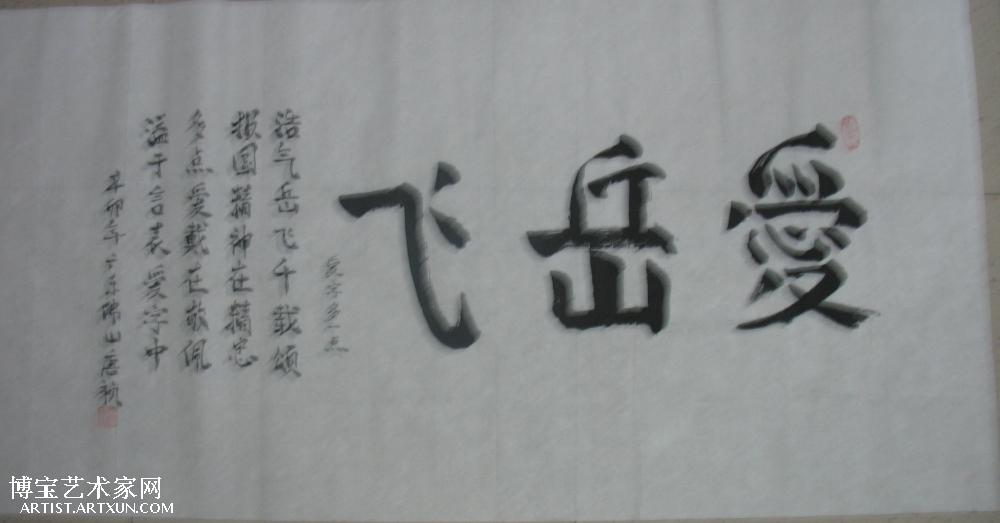 愛岳飞
爱字多一点
浩气岳飞千载颂
报国精神在精忠
多点爱戴在敬佩
溢于言表爱字中
辛卯年于乐山唐颖
博宝艺术家网
ARTIST.ARTXUN.COM